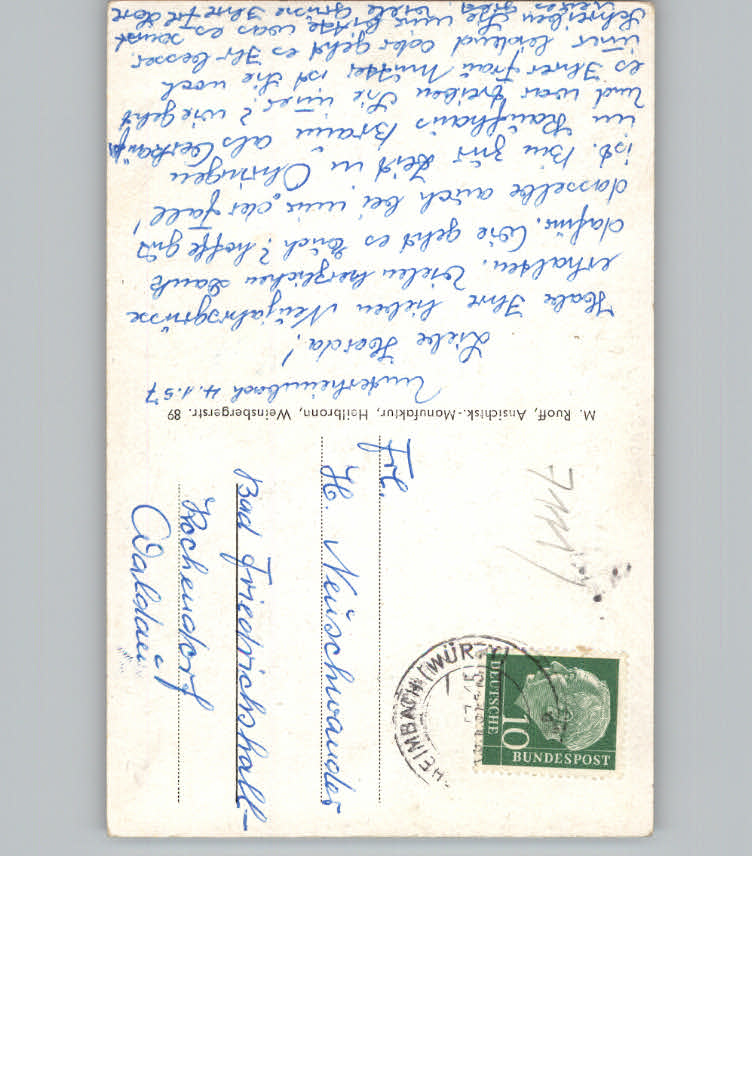 Unterheimbach 4.1.57
Liebe Herda!
Habe Ihre lieben Neujahrsgrüsse
erhalten. Vielen herzlichen Dank
dafür. Wie geht es Euch? hoffe gut
dasselbe auch bei mir der Fall
ist. Bin zur Zeit in Öhringen
im Kaufhaus Braun als Verkäuf.
und was treiben Sie immer? wie geht
es Ihrer Frau Mutter ist sie noch
immer leidend oder geht es Ihr besser.
Schreiben Sie mir bitte was es sonst
neues gibt. Viele Grüsse Ihre
M. Ruoff, Ansichtsk.-Manufaktur, Heilbronn, Weinsbergerstr. 89
Frl.
H. Neuschwander
Bad Friedrichshall-
Kochendorf
Waldau
DEUTSCHE
BUNDESPOST
10
HEIMBACH (WÜRTT)